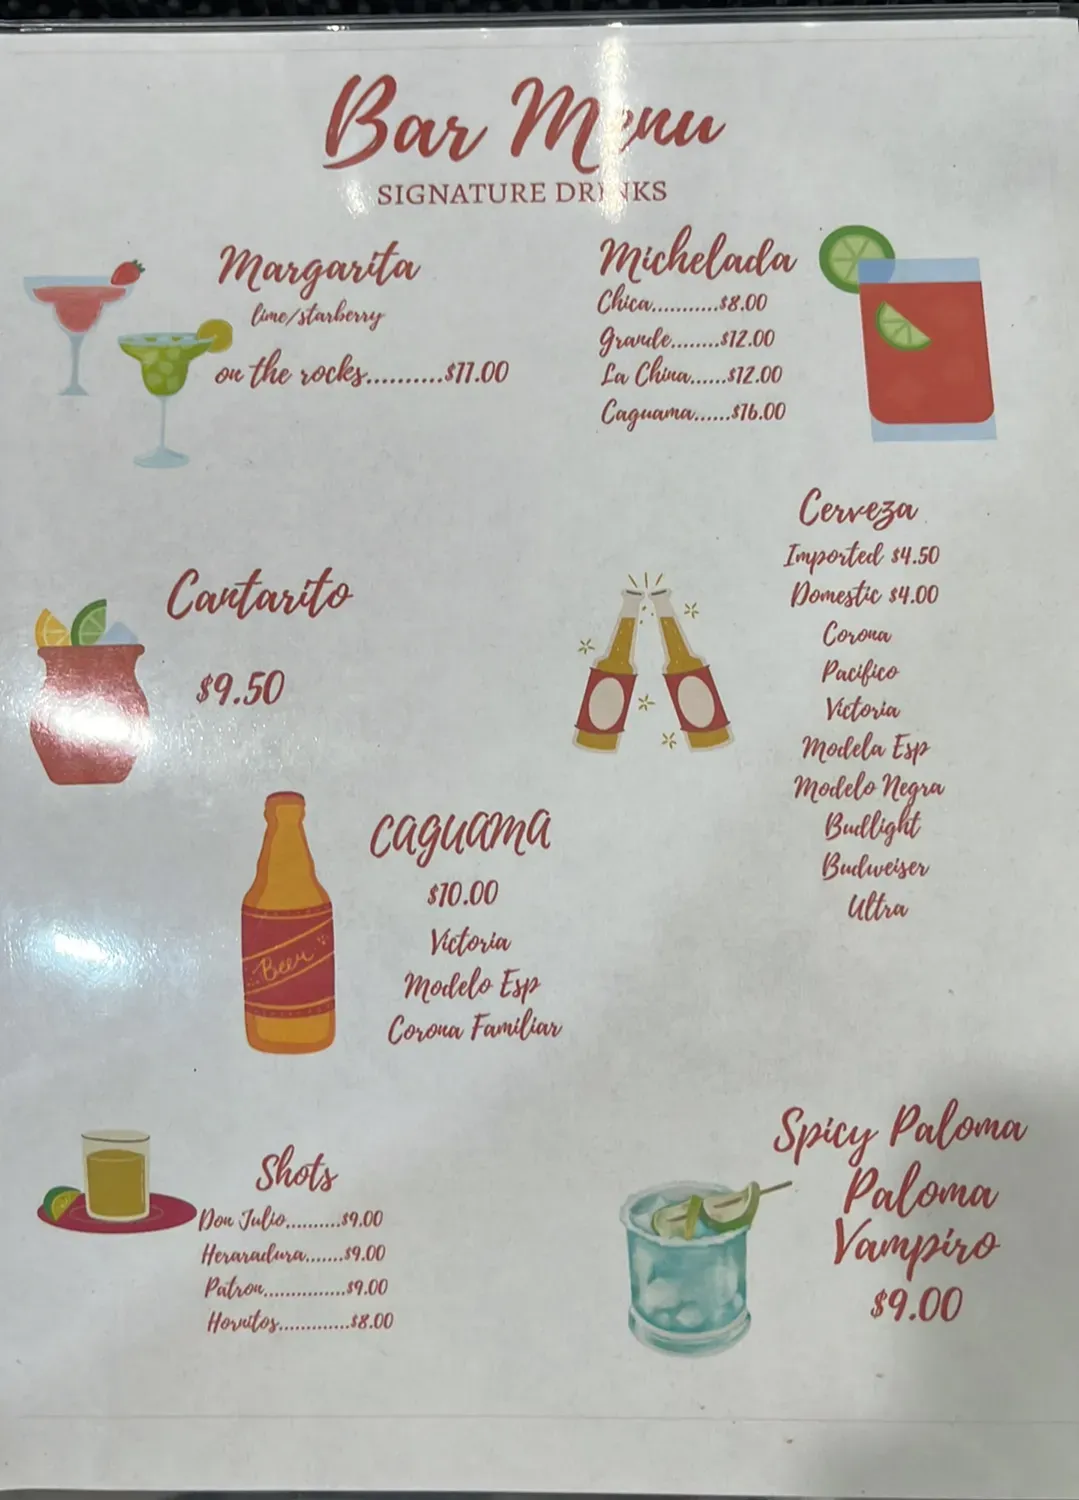 Bar Menu
SIGNATURE DRINKS
Margarita
lime/starberry
on the rocks..........$11.00
Michelada
Chica...........$8.00
Grande........$12.00
La China......$12.00
Caguama......$16.00
Cantarito
$9.50
Cerveza
Imported $4.50
Domestic $4.00
Corona
Pacifico
Victoria
Modela Esp
Modelo Negra
Budlight
Budweiser
Ultra
CAGUAMA
$10.00
Victoria
Modelo Esp
Corona Familiar
Beer
Shots
Don Julio..........$9.00
Heraradura.......$9.00
Patron...............$9.00
Hornitos.............$8.00
Spicy Paloma
Paloma
Vampiro
$9.00